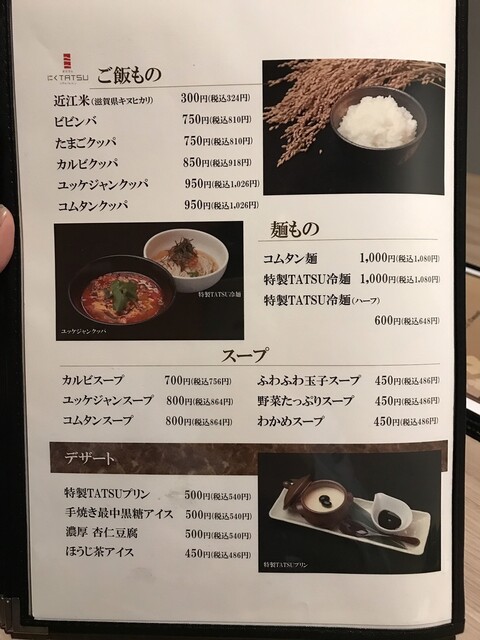 にくTATSU
ご飯もの
近江米(滋賀県キヌヒカリ) 300円(税込324円)
ビビンバ 750円(税込810円)
たまごクッパ 750円(税込810円)
カルビクッパ 850円(税込918円)
ユッケジャンクッパ 950円(税込1,026円)
コムタンクッパ 950円(税込1,026円)
特製TATSU冷麺
ユッケジャンクッパ
麺もの
コムタン麺 1,000円(税込1,080円)
特製TATSU冷麺 1,000円(税込1,080円)
特製TATSU冷麺(ハーフ)
600円(税込648円)
スープ
カルビスープ 700円(税込756円)
ユッケジャンスープ 800円(税込864円)
コムタンスープ 800円(税込864円)
ふわふわ玉子スープ 450円(税込486円)
野菜たっぷりスープ 450円(税込486円)
わかめスープ 450円(税込486円)
デザート
特製TATSUプリン 500円(税込540円)
手焼き最中黒糖アイス 500円(税込540円)
濃厚 杏仁豆腐 500円(税込540円)
ほうじ茶アイス 450円(税込486円)
特製TATSUプリン